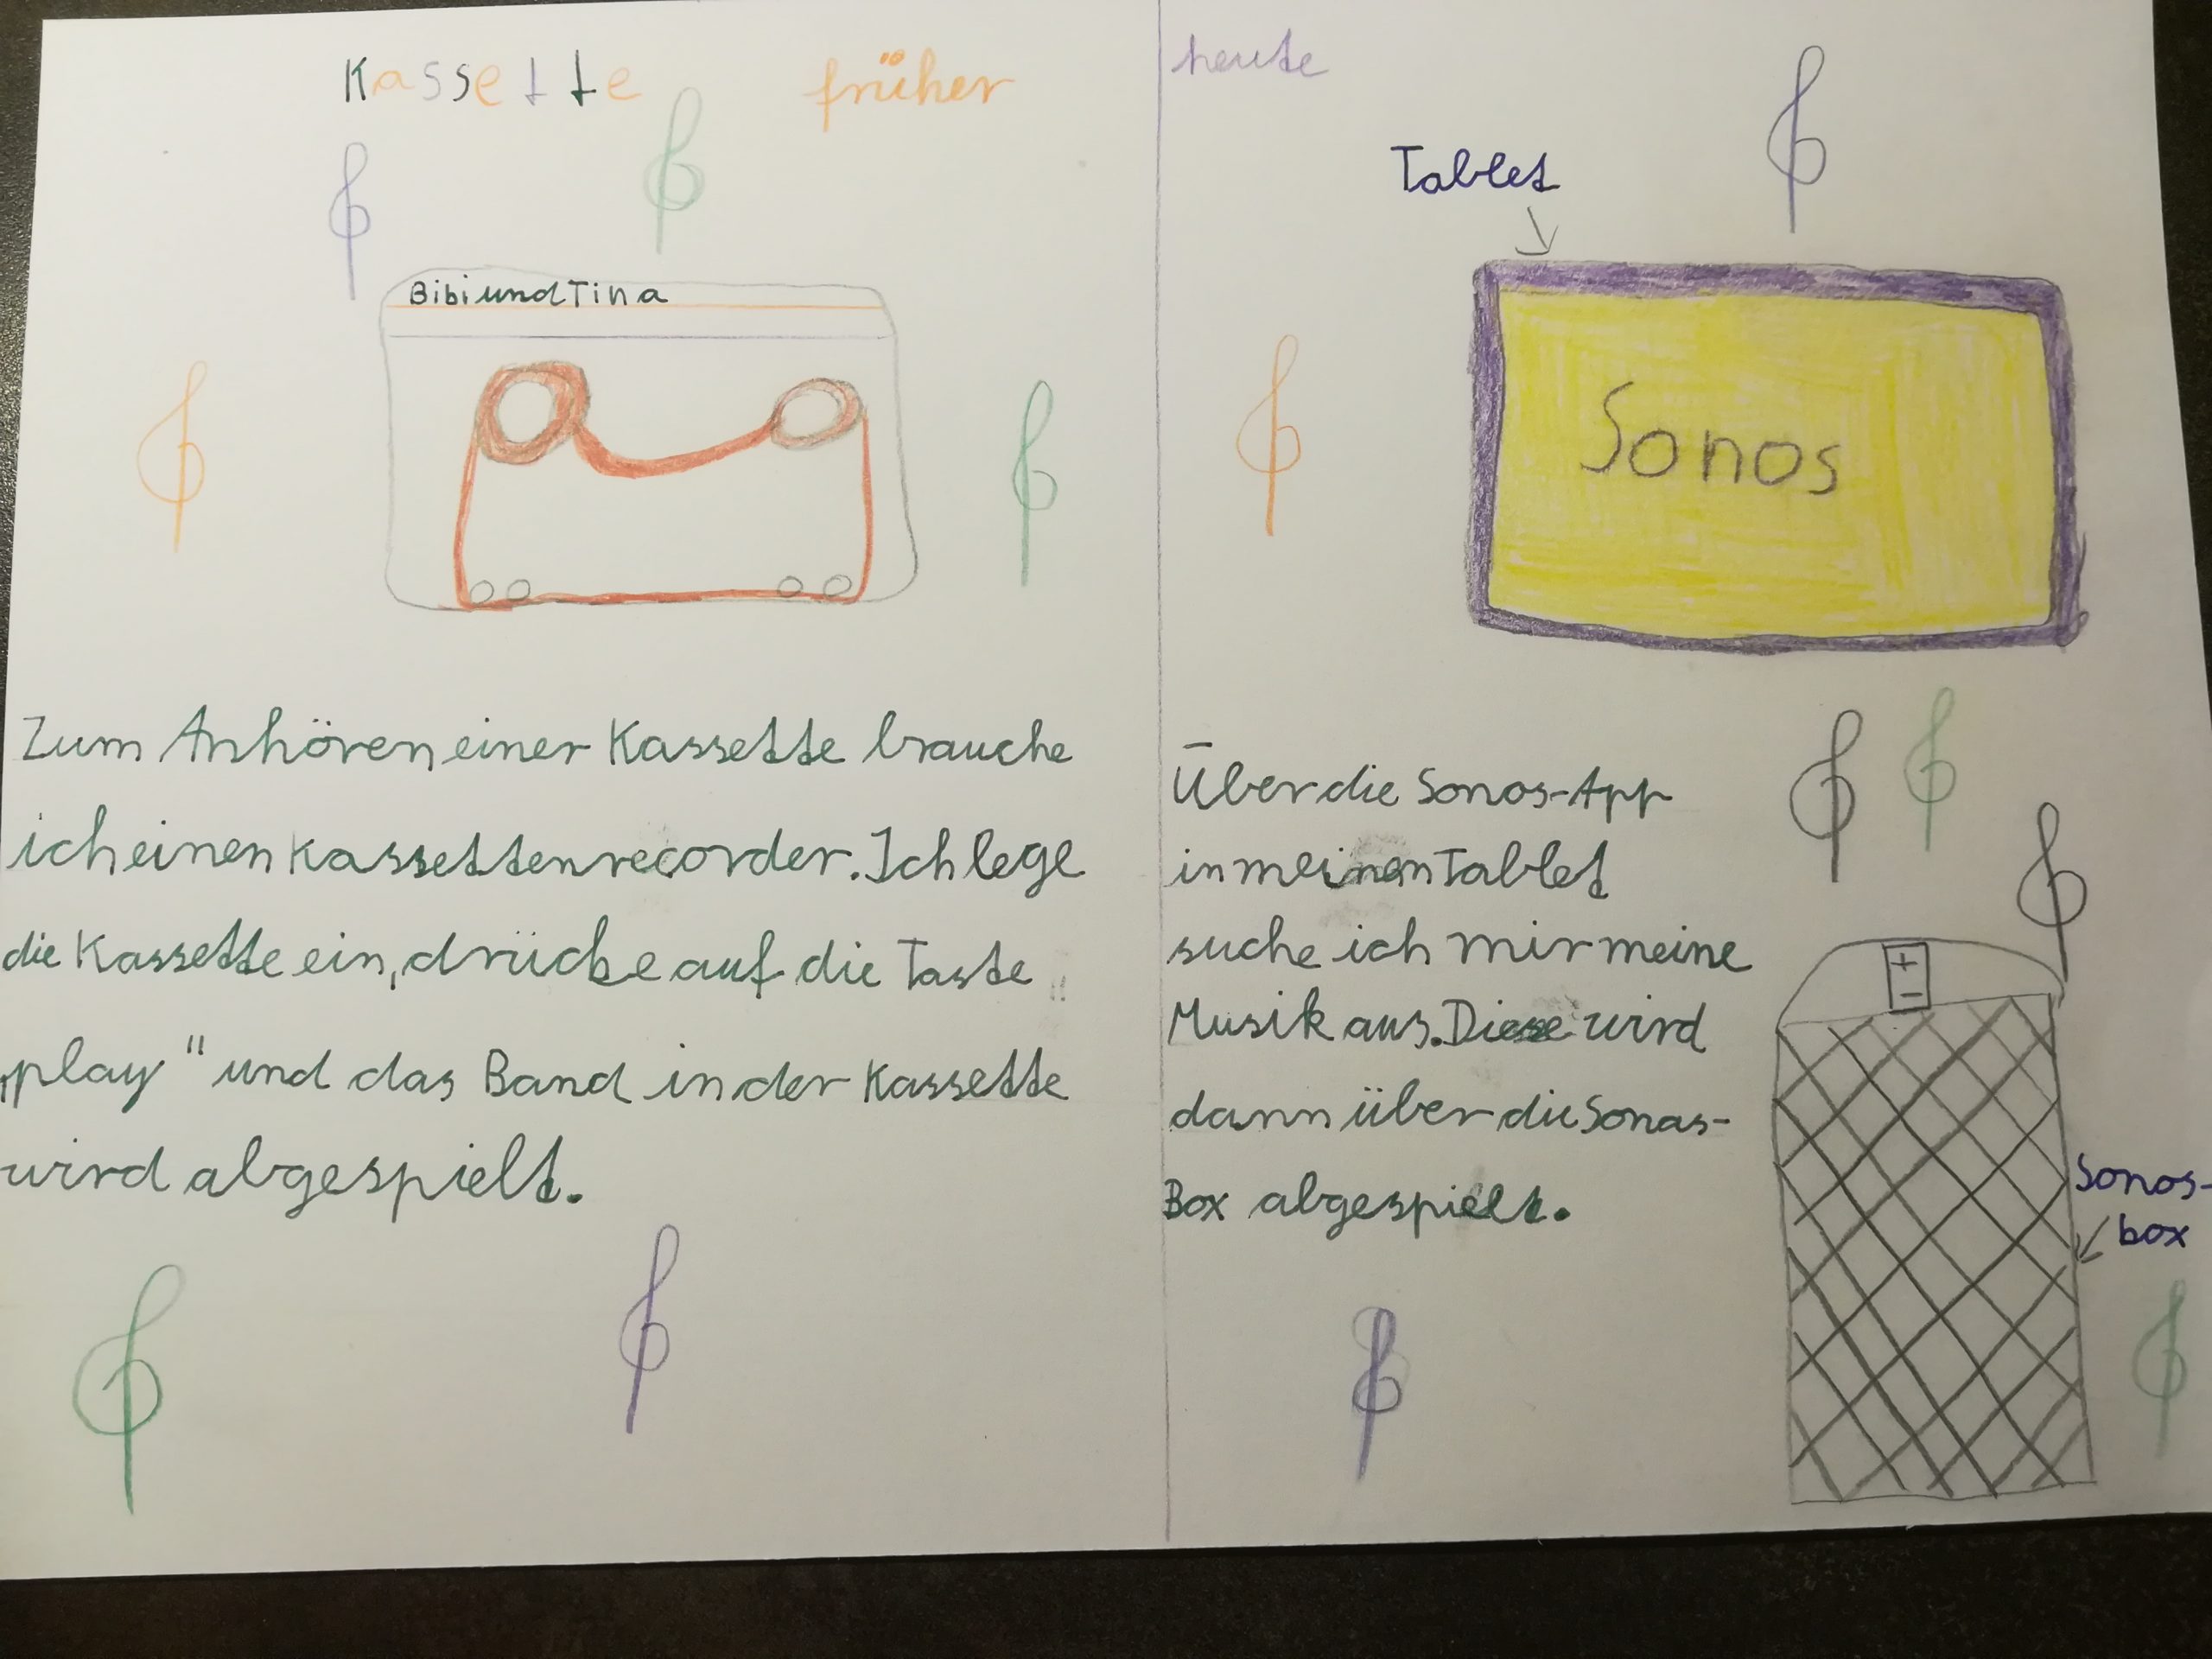 Kassette früher
Bibi und Tina
Zum Anhören einer Kassette brauche
ich einen Kassettenrecorder. Ich lege
die Kassette ein, drücke auf die Taste
„play" und das Band in der Kassette
wird abgespielt.
heute
Tablet
Sonos
Über die Sonos-App
in meinen Tablet
suche ich mir meine
Musik aus. Diese wird
dann über die Sonos-
Box abgespielt.
+
-
Sonos-
box